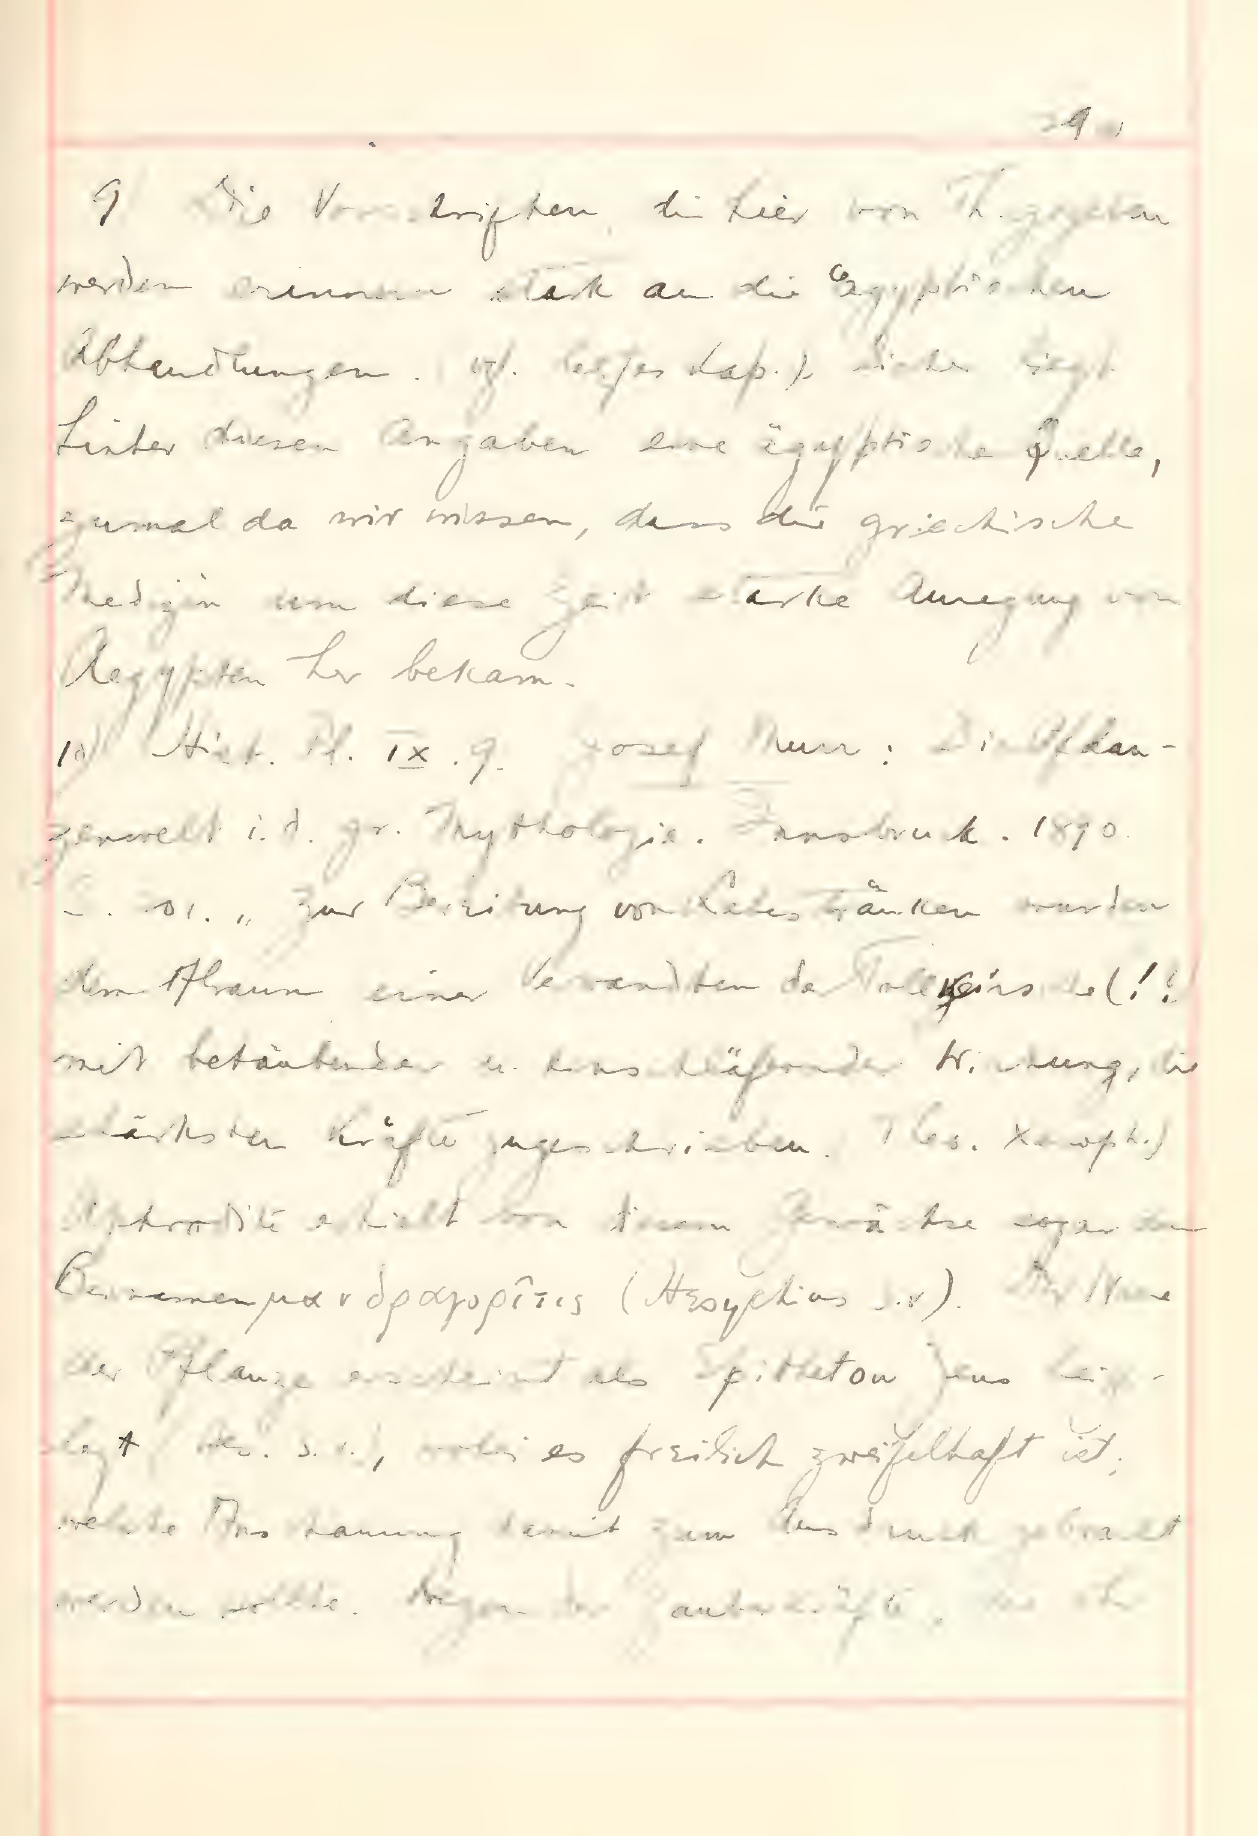 9) Die Vorschriften, die hier von Th. gegeben
werden erinnern stark an die aegyptischen
Abhandlungen. vgl. letztes Kap.). Sicher liegt
hinter diesen Angaben eine ägyptische Quelle,
zumal da wir wissen, dass die griechische
Medizin um diese Zeit starke Anregung von
Aegypten her bekam.
10) Hist. Pl. IX. 9. Josef Murr: Die Pflan-
zenwelt i. d. gr. Mythologie. Innsbruck. 1890.
S. „Zur Bereitung von Liebestränken wurden
dem Alraun einer Verwandten der Tollkirsche (!!
mit betäubender u. einschläfernder Wirkung, die
stärksten Kräfte zugeschrieben. Xenoph.)
Aphrodite erhielt von diesem Gewächse sogar den
Beinamen μανδραγορῖτις (Hesychius s.v). Der Name
der Pflanze erscheint als Epitheton Zeus beige-
legt s. v.), wobei es freilich zweifelhaft ist,
welche Anschauung damit zum Ausdruck gebracht
werden sollte. Wegen der Zauberkräfte, die